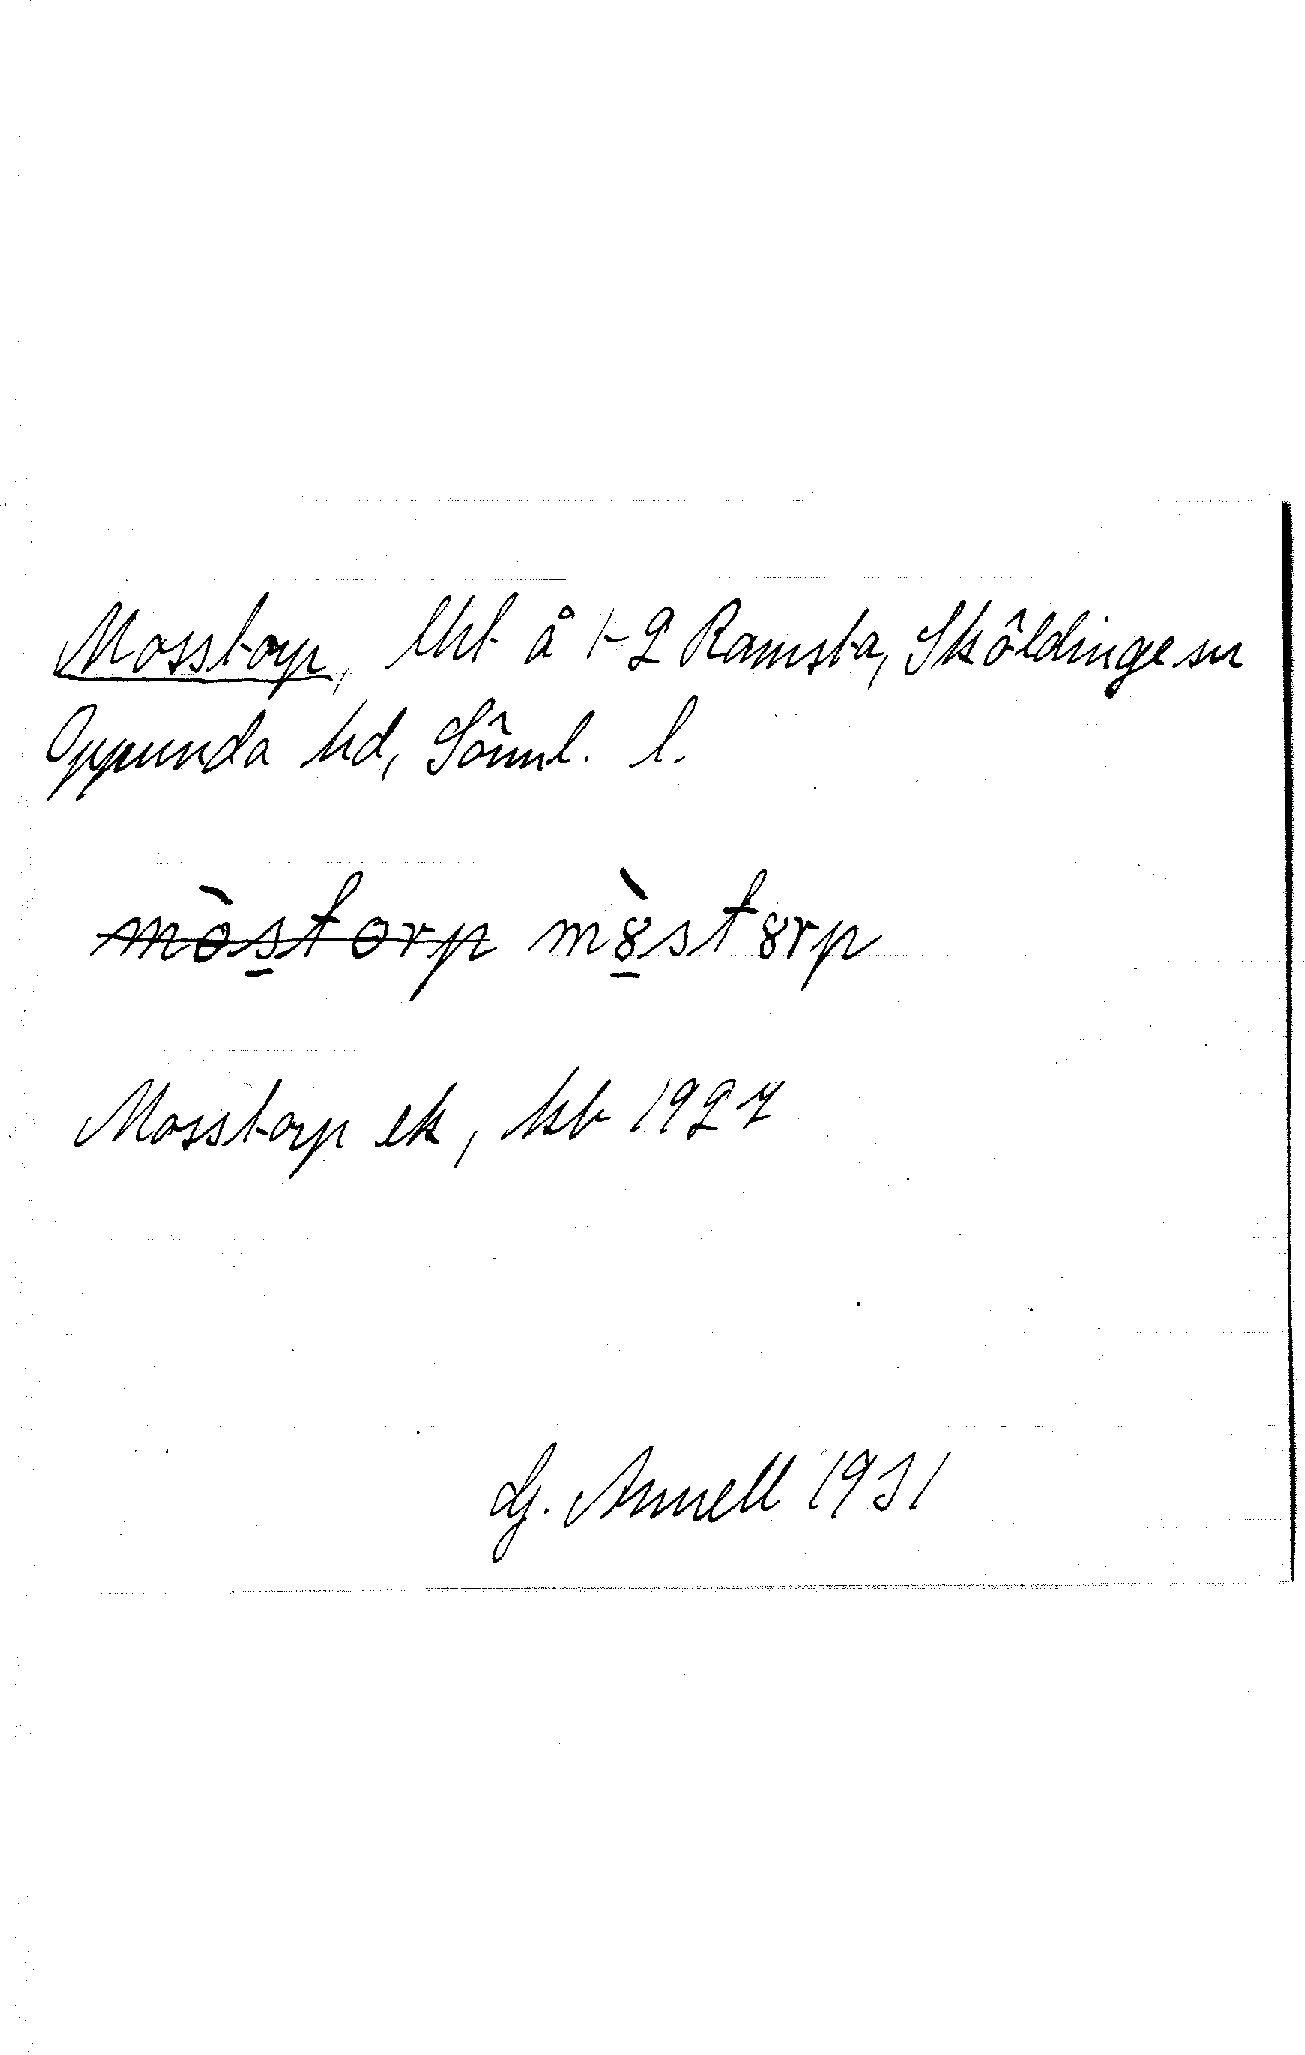 Mosstorp, lht å 1-2 Ramsta, Sköldinge sn
Oppunda hd, Söml. l.
mo̊storp mò̱8st8rp
Mosstorp ek, kb 1927
G. Annell 1931